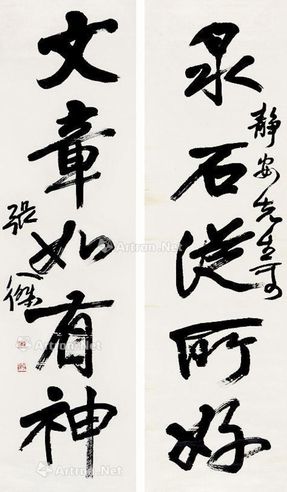 泉石從所好
靜安先生
文章如有神
張人傑
Artron.Net
Artron.Net
Artron.Net
Artron.Net
Artron.Net